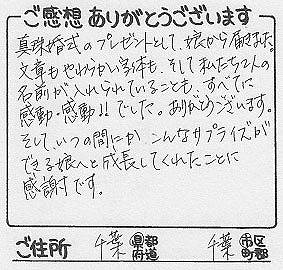 ご感想 ありがとうございます
真珠婚式のプレゼントとして、娘から届きました。
文章もやわらかい字体も、そして私たち2人の
名前が入れられていることも、すべてに
感動・感動!!でした。ありがとうございます。
そして、いつの間にか こんなサプライズが
できる娘へと成長してくれたことに
感謝です。
ご住所 千葉 都道府県 千葉 市区町郡